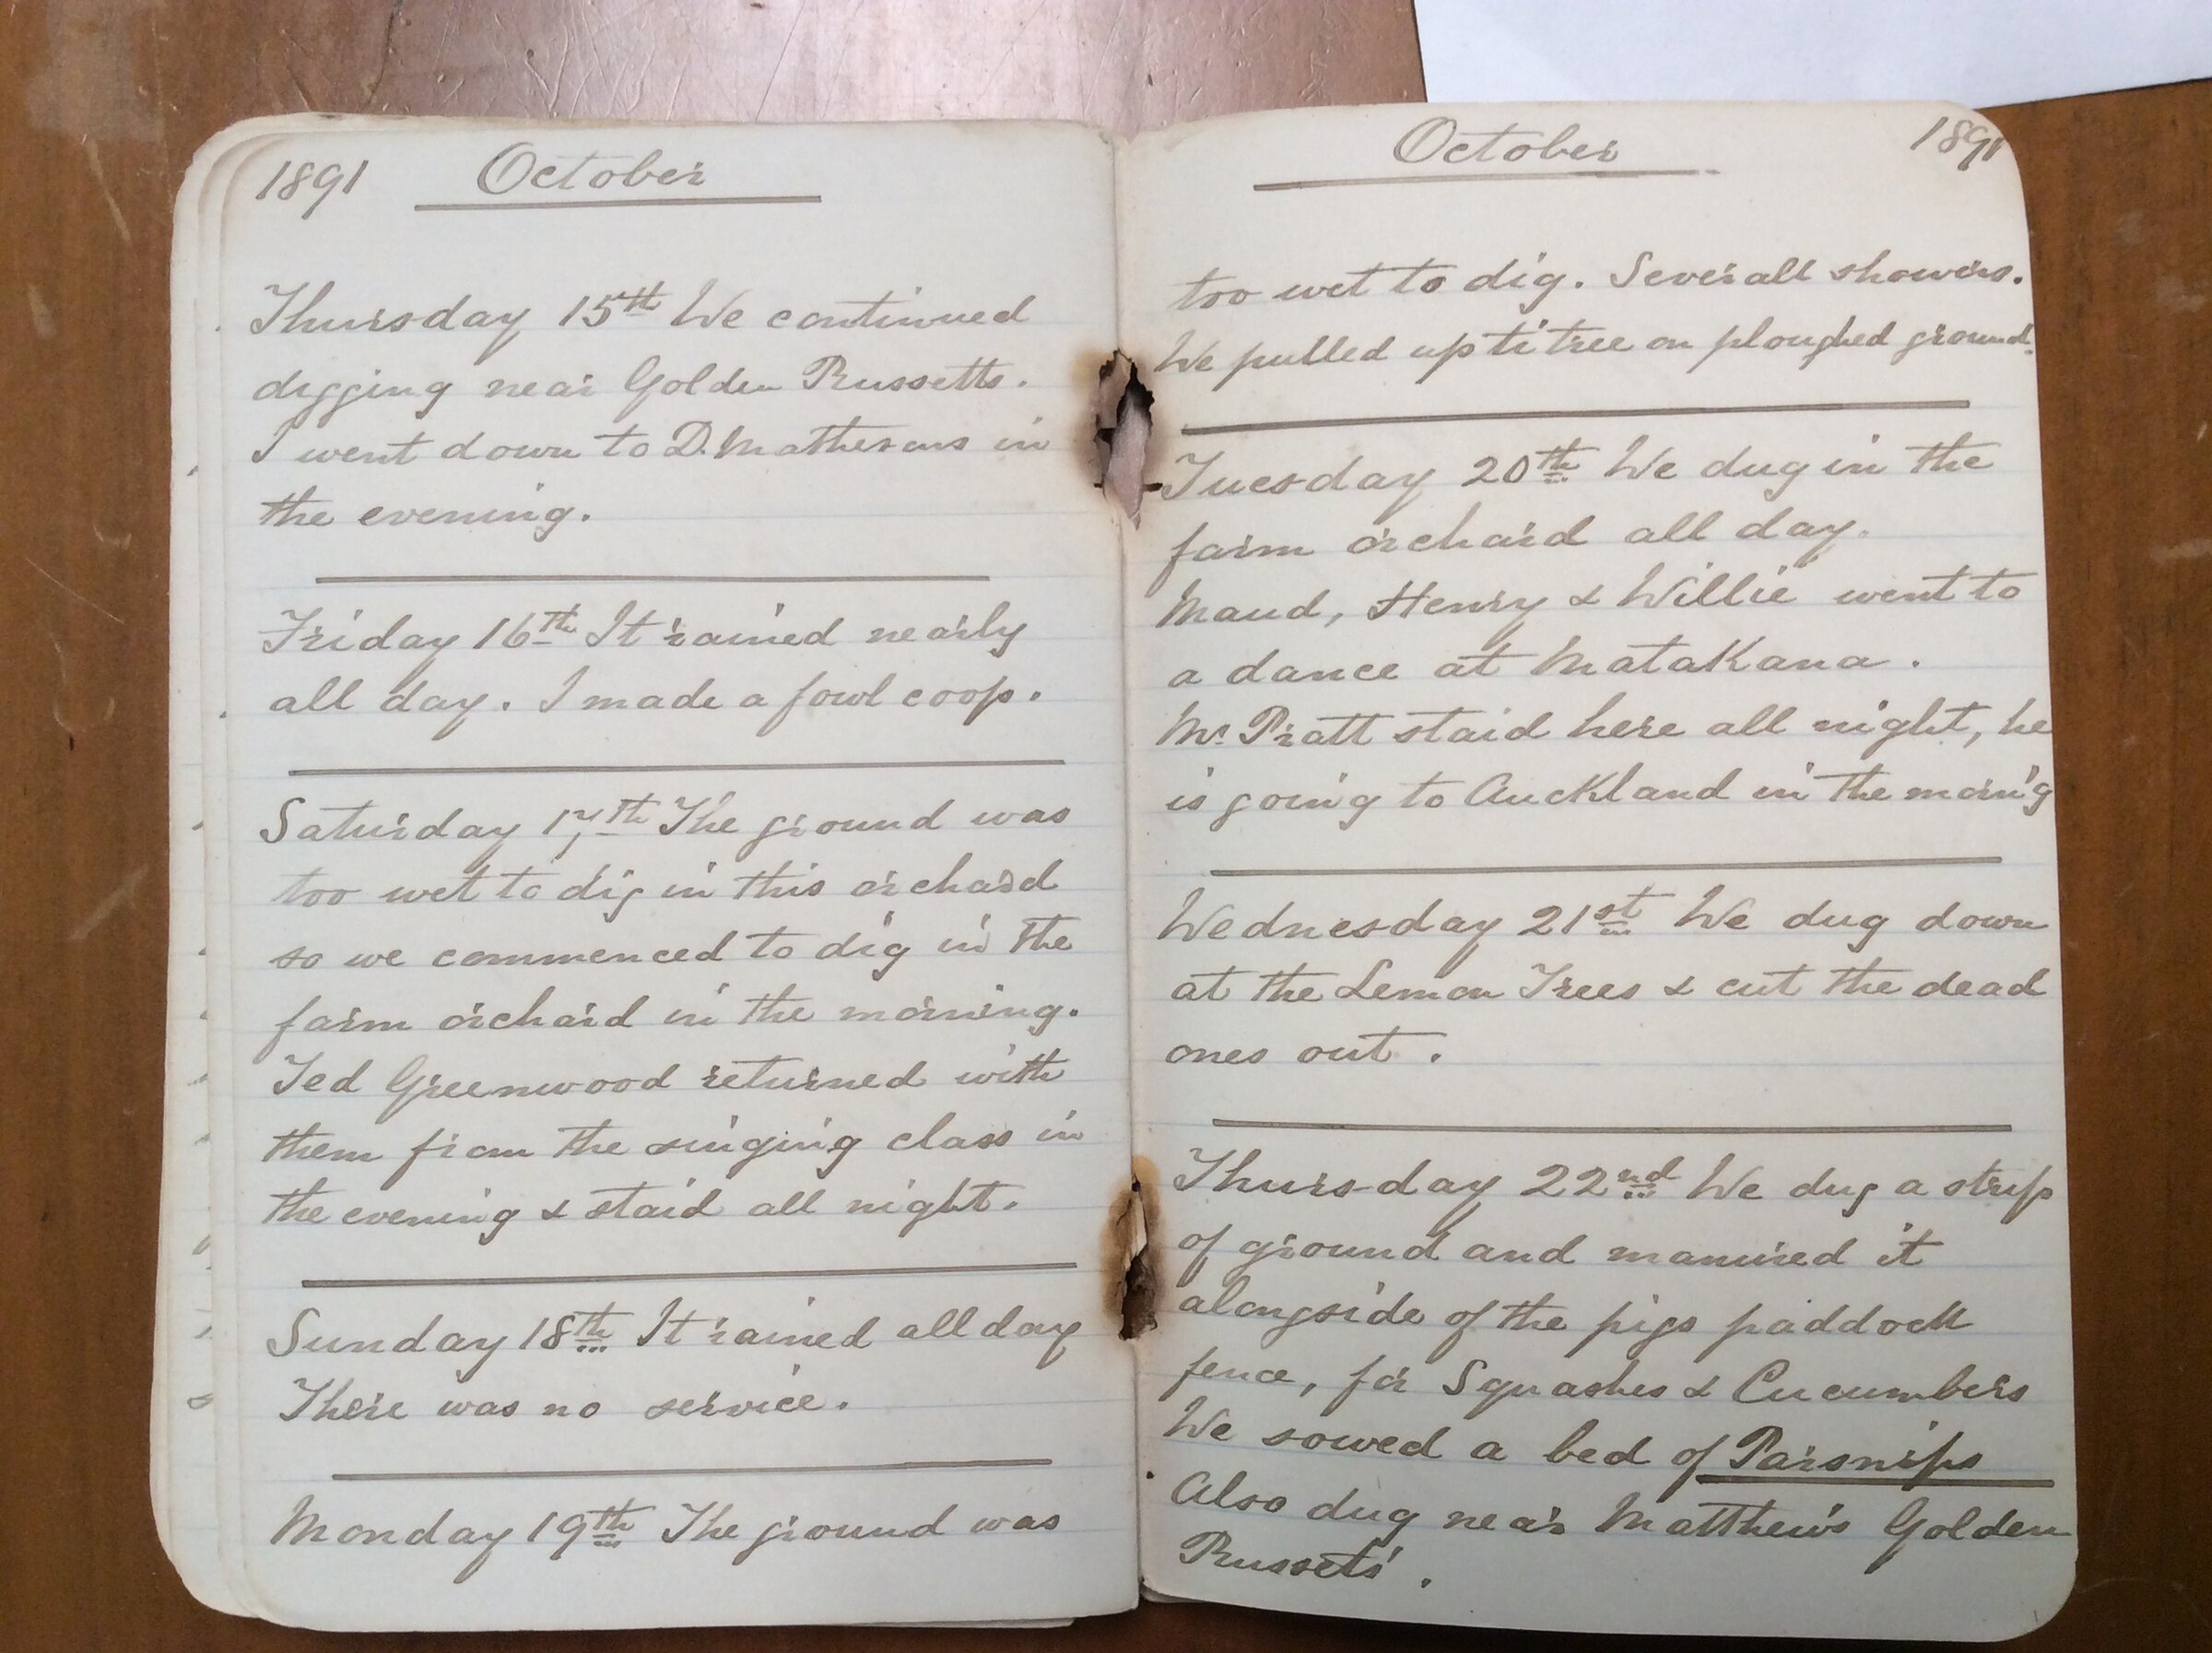 1891 October
Thursday 15th We continued
digging near Golden Russetts.
I went down to D. Mathesons in
the evening.
Friday 16th It rained nearly
all day. I made a fowl coop.
Saturday 17th The ground was
too wet to dig in this orchard
so we commenced to dig in the
farm orchard in the morning.
Ted Greenwood returned with
them from the singing class in
the evening & staid all night.
Sunday 18th It rained all day
There was no service.
Monday 19th The ground was
October 1891
too wet to dig. Severall showers.
We pulled up ti tree on ploughed ground.
Tuesday 20th We dug in the
farm orchard all day.
Maud, Henry & Willie went to
a dance at Matakana.
Mr. Pratt staid here all night, he
is going to Auckland in the morn'g
Wednesday 21st We dug down
at the Lemon Trees & cut the dead
ones out.
Thursday 22nd We dug a strip
of ground and manured it
alongside of the pigs paddock
fence, for Squashes & Cucumbers
We sowed a bed of Parsnips
Also dug near Matthew's Golden
Russets'.